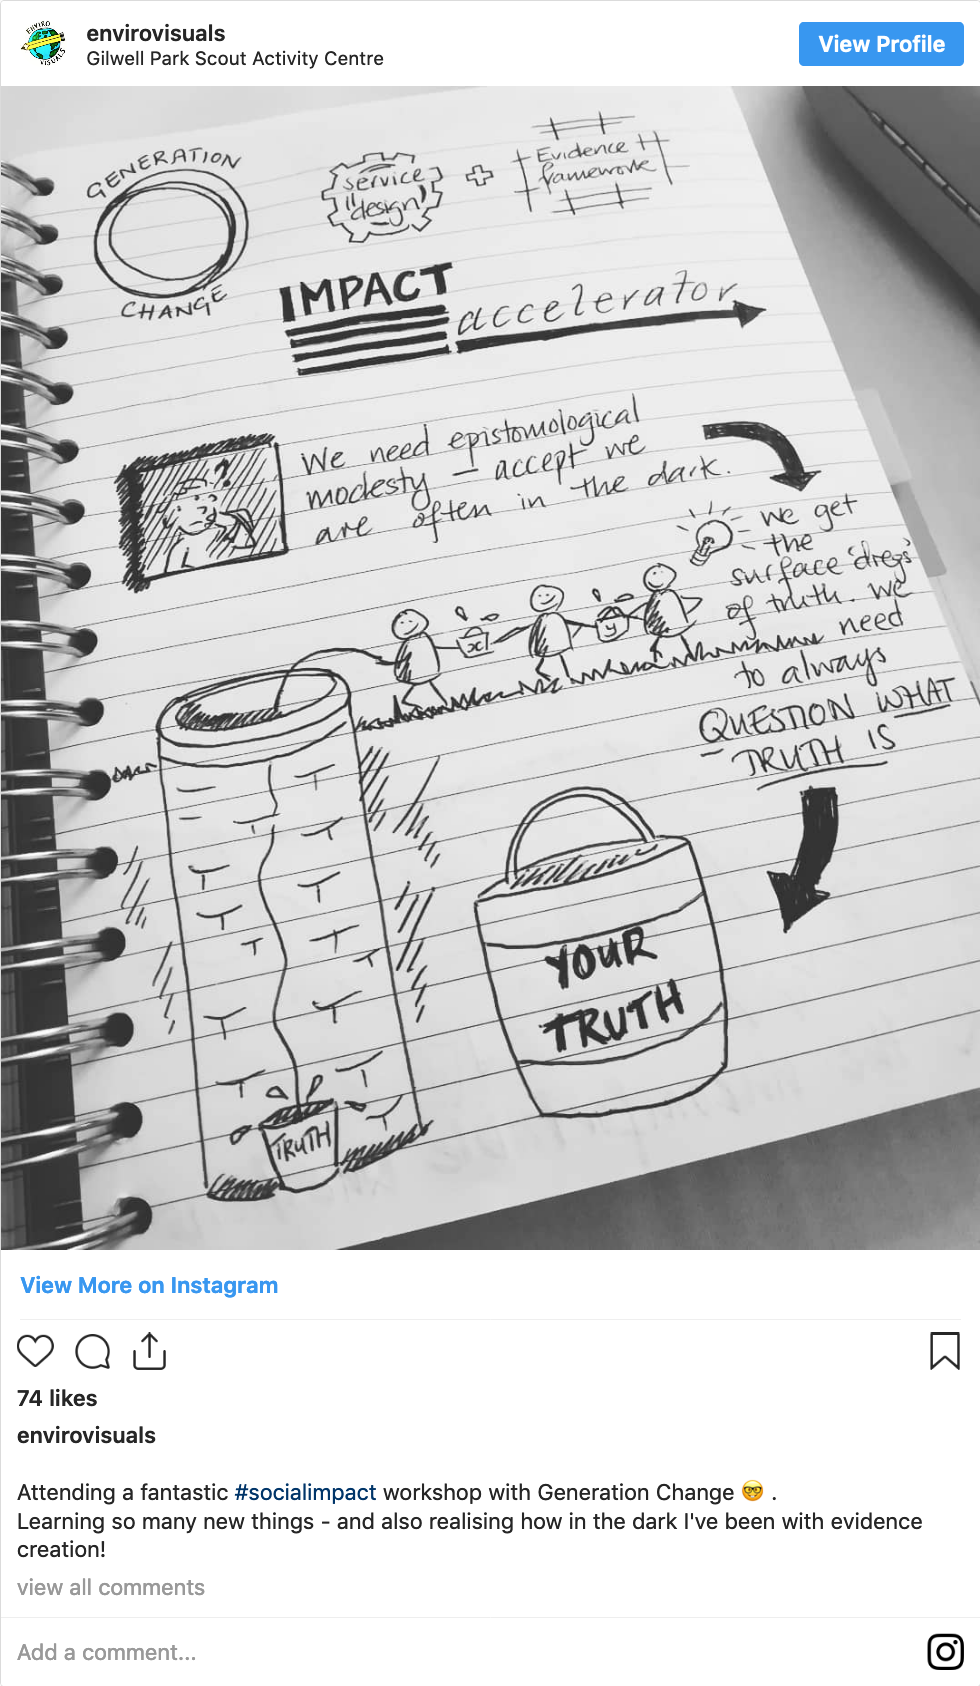 envirovisuals
Gilwell Park Scout Activity Centre
View Profile
ENVIRO
VISUALS
GENERATION
CHANGE
service
"design"
+
Evidence
framework
IMPACT
accelerator
?
We need epistomological
modesty – accept we
are often in the dark.
we get
the
surface 'dregs'
of truth. We
need
to always
QUESTION WHAT
TRUTH IS
x
y
YOUR
TRUTH
TRUTH
View More on Instagram
74 likes
envirovisuals
Attending a fantastic #socialimpact workshop with Generation Change 🤓 .
Learning so many new things - and also realising how in the dark I've been with evidence
creation!
view all comments
Add a comment...